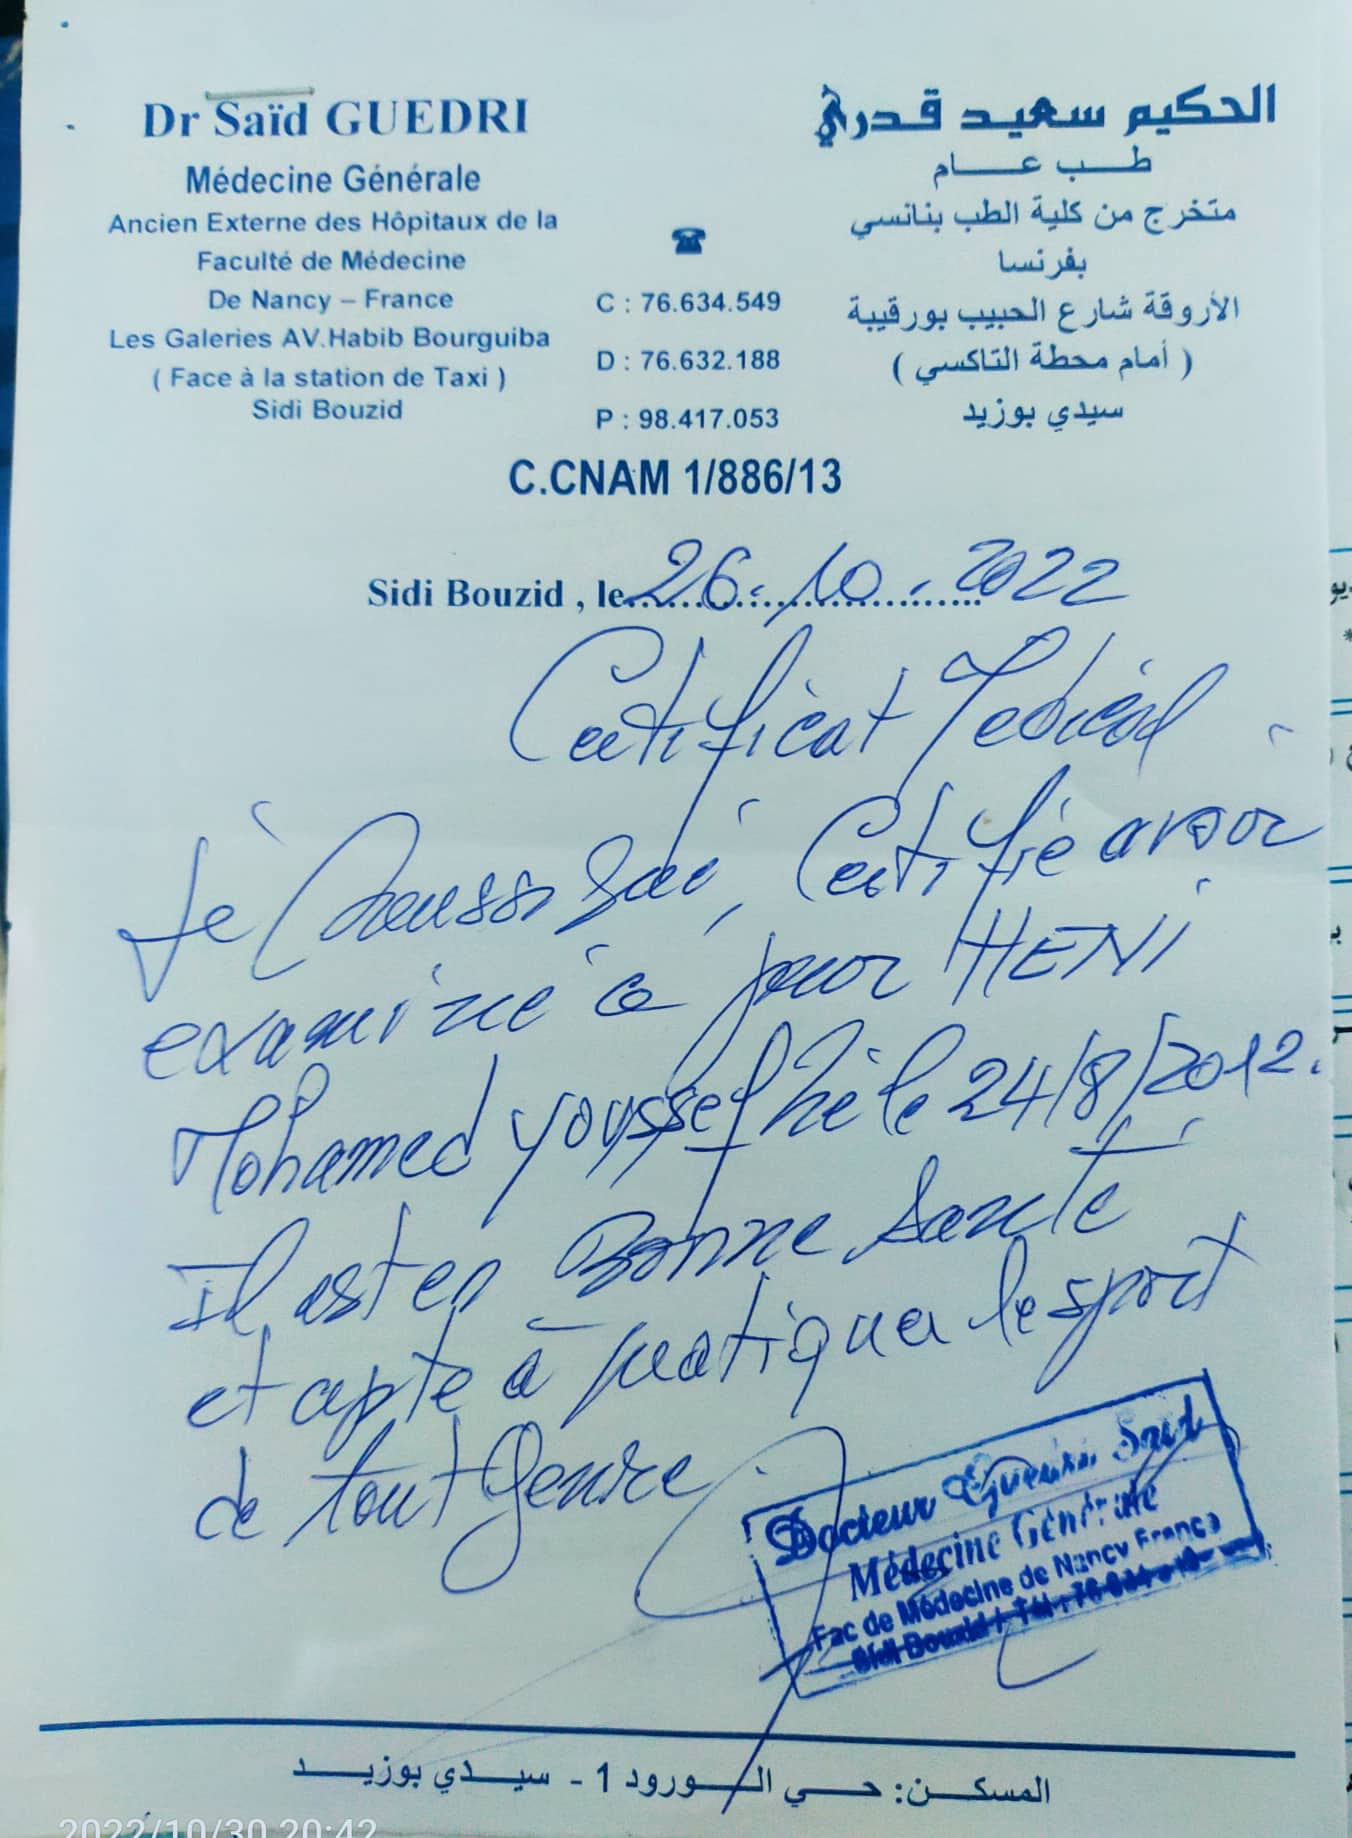 Dr Saïd GUEDRI
Médecine Générale
Ancien Externe des Hôpitaux de la
Faculté de Médecine
De Nancy – France
Les Galeries AV.Habib Bourguiba
( Face à la station de Taxi )
Sidi Bouzid
☎
C : 76.634.549
D : 76.632.188
P : 98.417.053
الحكيم سعيد قدري
طب عام
متخرج من كلية الطب بنانسي
بفرنسا
الأروقة شارع الحبيب بورقيبة
( أمام محطة التاكسي )
سيدي بوزيد
C.CNAM 1/886/13
Sidi Bouzid , le 26.10.2022
Certificat Médical
Je soussigné, certifie avoir
examiné ce jour HENI
Mohamed Youssef né le 24/8/2012.
Il est en Bonne Santé
et apte à pratiquer le sport
de tout genre
Docteur Guedri Saïd
Médecine Générale
Fac de Médecine de Nancy France
Sidi Bouzid
المسكن: حي الورود 1 - سيدي بوزيد
2022/10/30 20:42